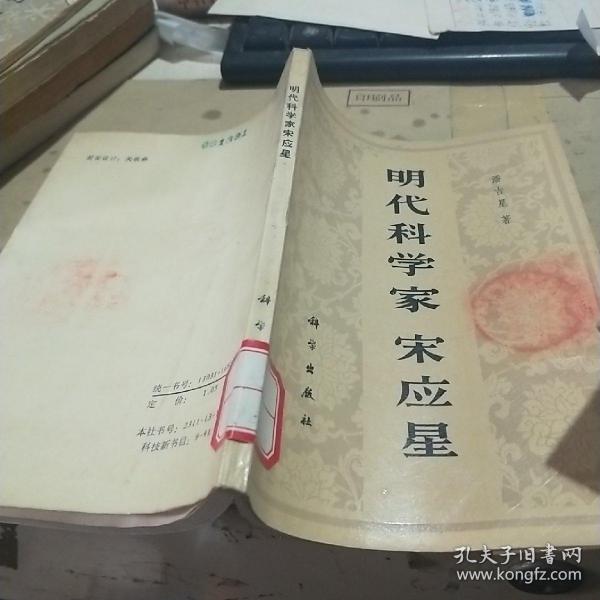 明代科学家 宋应星
潘吉星 著
科学出版社
明代科学家宋应星
科学
印刷品
统一书号：13031·
定 价：1.05
本社书号：2311·13-
科技新书目：
孔夫子旧书网
www.kongfz.com